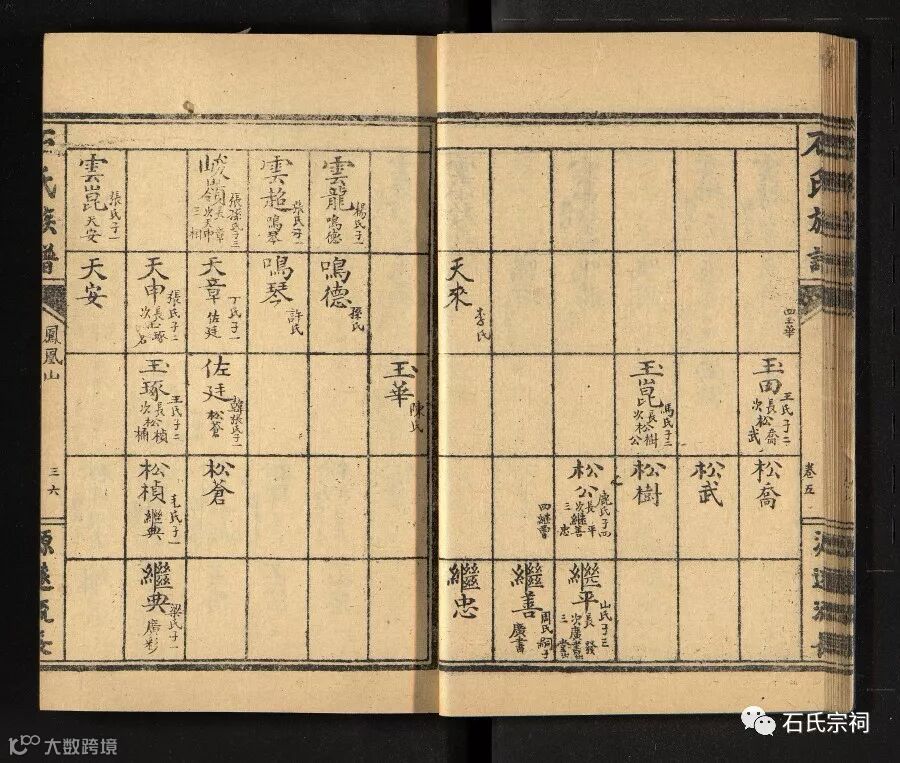 石氏族譜
卷五
源遠流長
四玉華
玉田
王氏子二
長松喬
次松武
松喬
松武
玉崑
馮氏子二
長松樹
次松公
松樹
松公
鹿氏子四
長平
次繼善
三忠
四繼曹
繼平
山氏子三
長發
次廣書
繼善
周氏嗣子
廣書
天來
李氏
繼忠
玉華
陳氏
雲龍
楊氏子一
鳴德
鳴德
孫氏
雲超
張氏子一
鳴琴
鳴琴
許氏
峻嶺
張孫氏子三
長天章
次天申
三相
天章
丁氏子一
佐廷
佐廷
韓張氏子一
松蒼
松蒼
天申
張氏子二
長玉琢
次名
玉琢
王氏子二
長松楨
次松桶
松楨
毛氏子一
繼典
繼典
梁氏子一
廣彩
雲崑
張氏子一
天安
天安
石氏族譜
鳳凰山
三六
源遠流長
石氏宗祠
大数跨境